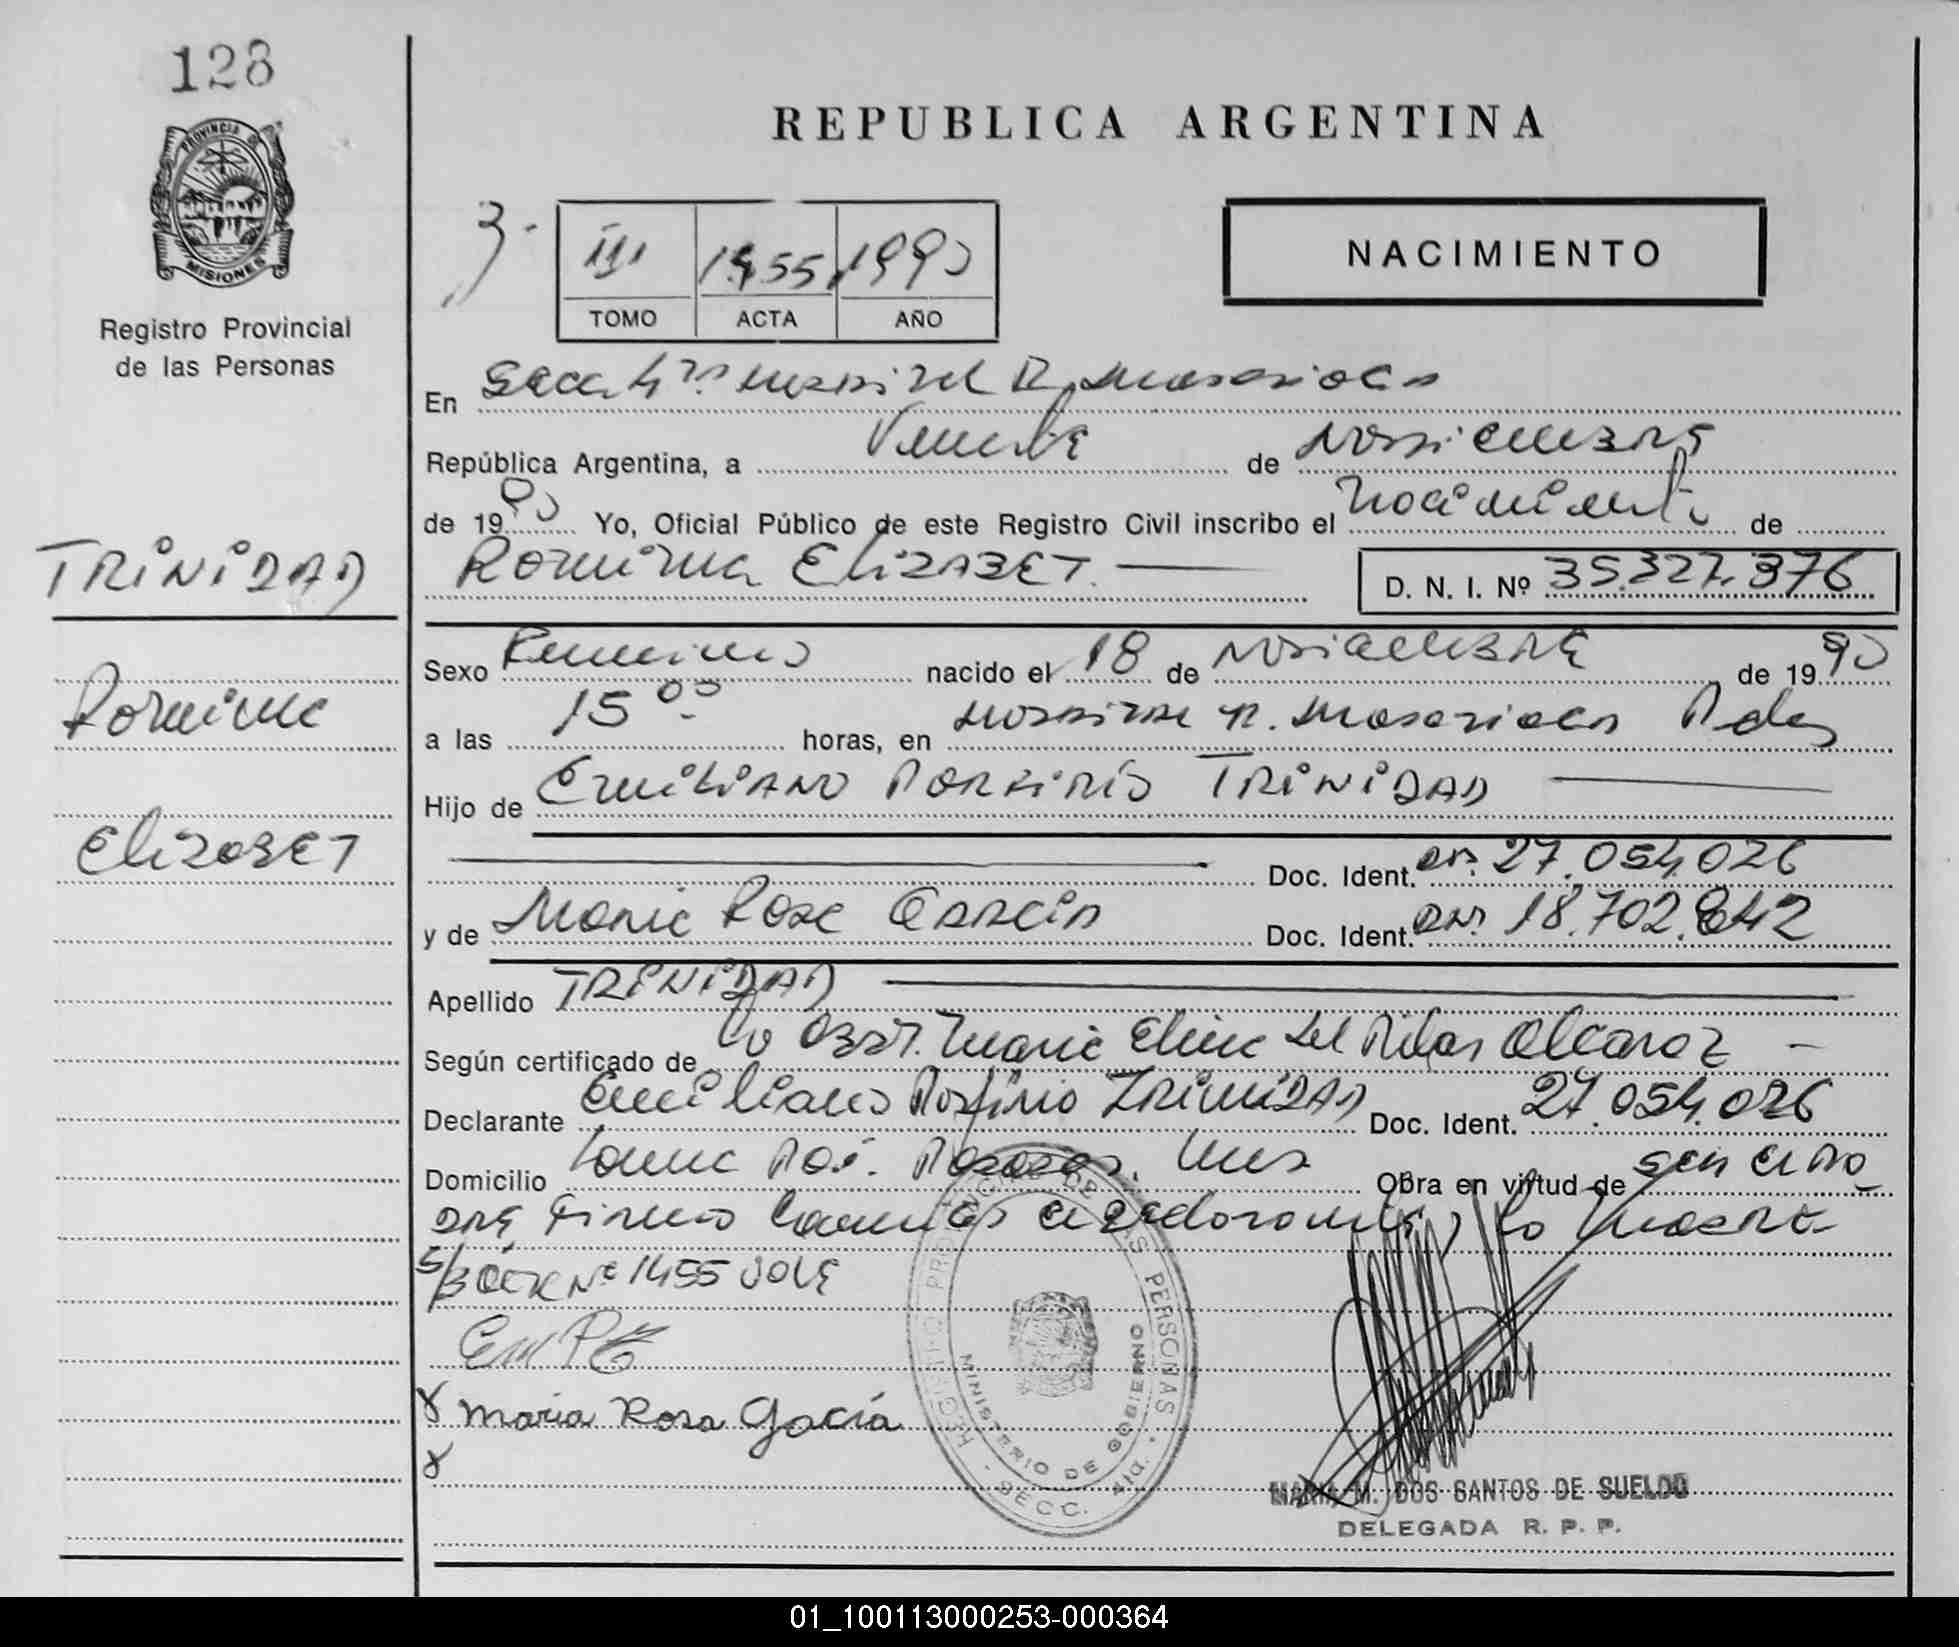 128
PROVINCIA DE
MISIONES
Registro Provincial
de las Personas
TRINIDAD
Romina
Elizabet
REPUBLICA ARGENTINA
3.
III 1455 1990
TOMO ACTA AÑO
NACIMIENTO
En Secc. 4ta Hospital R. Madariaga
República Argentina, a Veinte de Noviembre
de 1990 Yo, Oficial Público de este Registro Civil inscribo el Nacimiento de
Romina ELIZABET. D. N. I. Nº 35.327.376
Sexo Femenino nacido el 18 de Noviembre de 1990
a las 15 00 horas, en Hospital R. Madariaga Pdas
Hijo de Emiliano Porfirio TRINIDAD
Doc. Ident. DNI. 27.054.026
y de Maria Rosa Garcia Doc. Ident. DNI. 18.702.642
Apellido TRINIDAD
Según certificado de la Obst. Maria Elena Del Pilar Alcaraz
Declarante Emiliano Porfirio TRINIDAD Doc. Ident. 27.054.026
Domicilio Posadas. Mnes Obra en virtud de ser el Pa
dre Firma la madre
1455 VALE
Maria Rosa Gacía
REGISTRO PROVINCIAL DE LAS PERSONAS
MINISTERIO DE GOBIERNO
SECC. 4ta.
MARIA M. DOS SANTOS DE SUELDO
DELEGADA R. P. P.
01_100113000253-000364